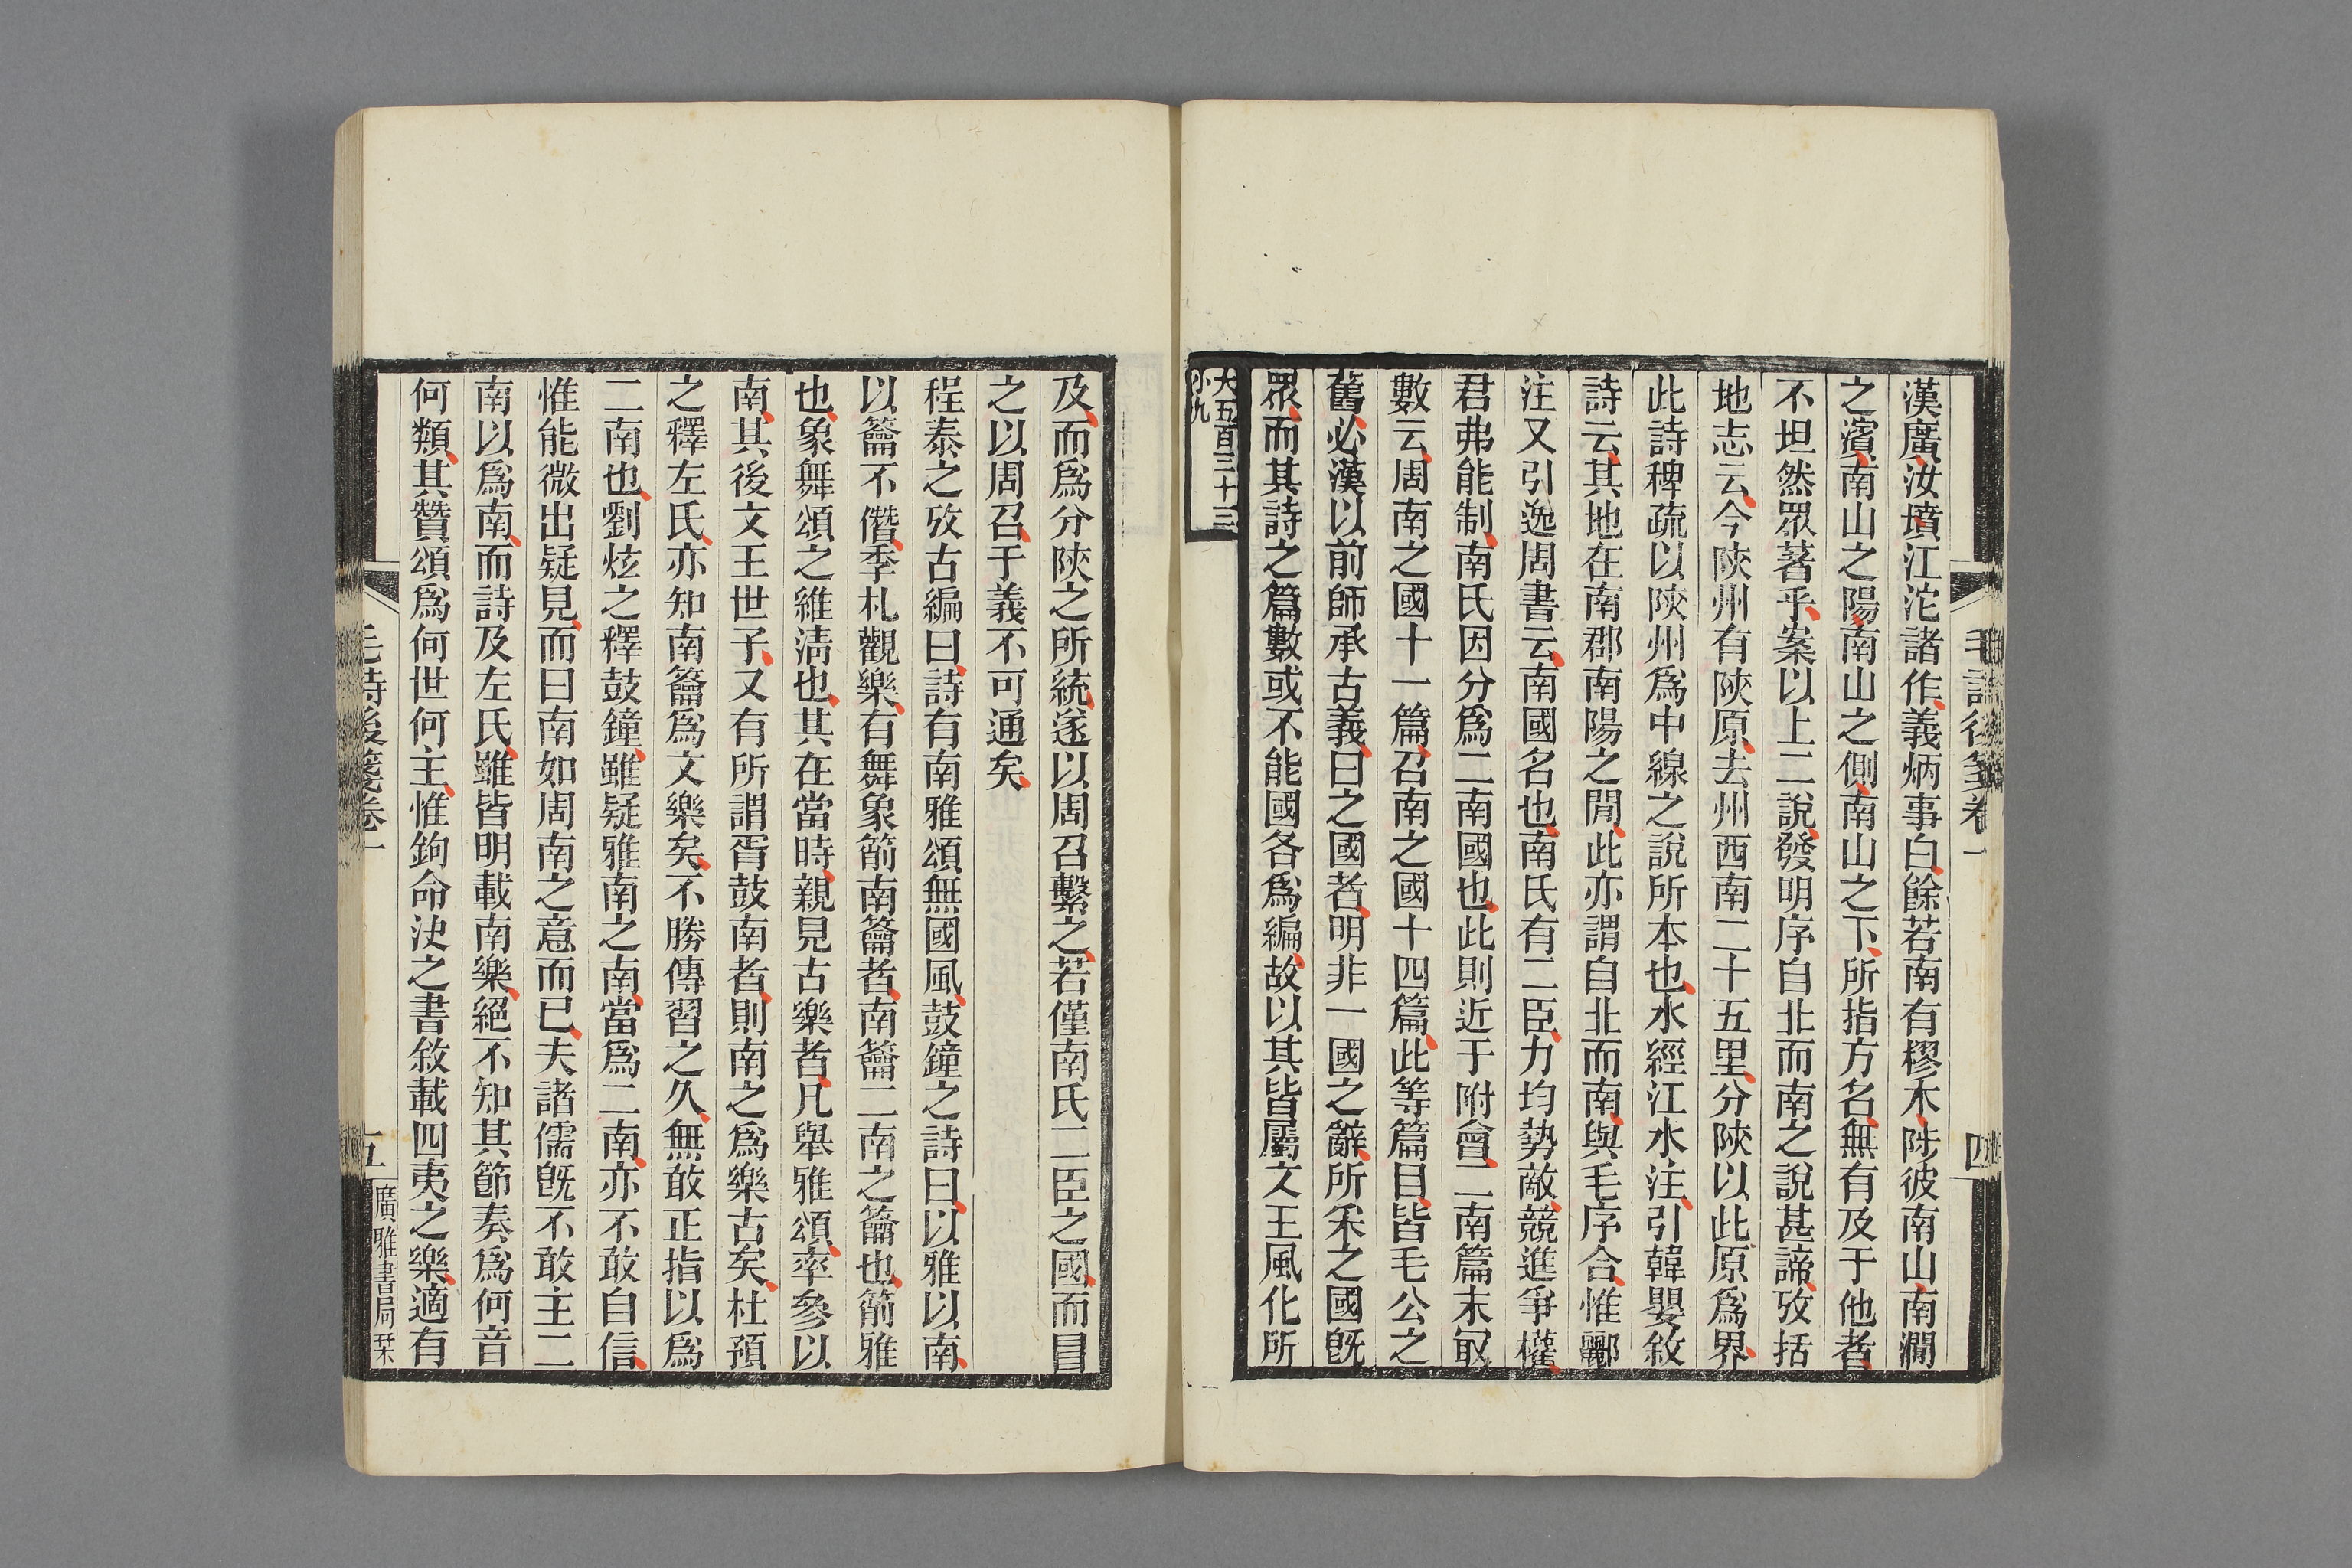 毛詩後箋卷一
四
漢廣、汝墳、江沱諸作、義炳事白、餘若南有樛木、陟彼南山、南澗
之濱、南山之陽、南山之側、南山之下、所指方名、無有及于他者、
不坦然眾著乎、案以上二說、發明序自北而南之說甚諦、攷括
地志云、今陝州有陝原、去州西南二十五里、分陝以此原爲界、
此詩稗疏以陝州爲中線之說所本也、水經江水注、引韓嬰敘
詩云、其地在南郡南陽之閒、此亦謂自北而南、與毛序合、惟酈
注又引逸周書云、南國名也、南氏有二臣、力均勢敵、競進爭權、
君弗能制、南氏因分爲二南國也、此則近于附會、二南篇末㝡
數云、周南之國十一篇、召南之國十四篇、此等篇目、皆毛公之
舊、必漢以前師承古義、曰之國者、明非一國之辭、所采之國旣
眾、而其詩之篇數或不能國各爲編、故以其皆屬文王風化所
大五百三十三
小九
及、而爲分陝之所統、遂以周召繫之、若僅南氏二臣之國、而冒
之以周召、于義不可通矣、
程泰之攷古編曰、詩有南雅頌無國風、鼓鐘之詩曰、以雅以南、
以籥不僭、季札觀樂、有舞象箾南籥者、南籥二南之籥也、箾雅
也、象舞頌之維淸也、其在當時、親見古樂者、凡舉雅頌、率參以
南、其後文王世子、又有所謂胥鼓南者、則南之爲樂古矣、杜預
之釋左氏、亦知南籥爲文樂矣、不勝傳習之久、無敢正指以爲
二南也、劉炫之釋鼓鐘、雖疑雅南之南、當爲二南、亦不敢自信、
惟能微出疑見、而曰南如周南之意而已、夫諸儒旣不敢主二
南以爲南、而詩及左氏、雖皆明載南樂、絕不知其節奏爲何音
何類、其贊頌爲何世何主、惟鉤命決之書敘載四夷之樂、適有
毛詩後箋卷一
五
廣雅書局栞